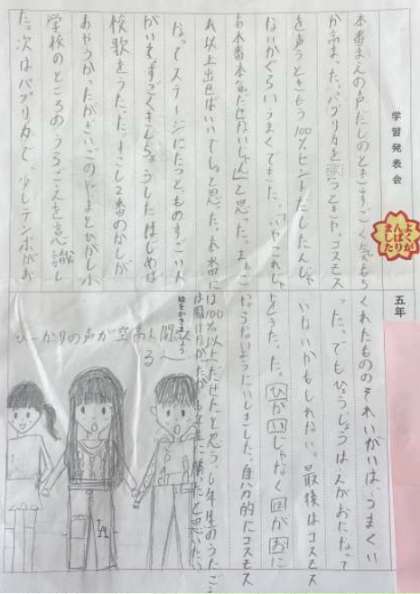 学習発表会
五年
よくがんばりました
本番まえの声だしのとき、すごく気もち
が高まった。パプリカを歌うときや、コスモス
を歌うときもう100%
ないかぐらいうまくできた。「いや、これじゃ
あ本番本気だせないじゃん」と思った。まあ、こ
れ以上出ればいいでしょと思った。本番に
なってステージにたつと、ものすごい人
がいてすごくきんちょうした。はじめは
校歌をうたった。すこし2番のかしが
あやうかったがさいごのやまとひがし小
学校のところのうらごえを意識し
た。次はパプリカで、少しテンポがお
くれたもののそれいがいは、うまくい
った。でもひょうじょうはえがおになって
いないかもしれない。最後はコスモス
じゃなく
ならないようにいしきした。自分的にコスモス
は100%以上だせたと思う。6年生のうたごえ
と思いたい
絵をかきましょう
ひーかりの声が空高く聞える